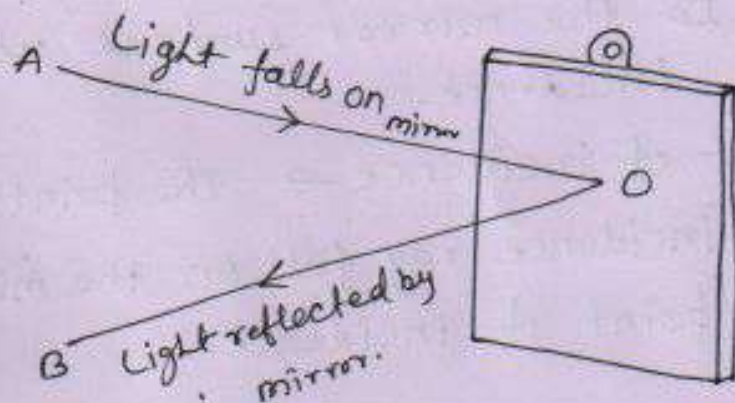 A
Light falls on mirror
O
B
Light reflected by
mirror.